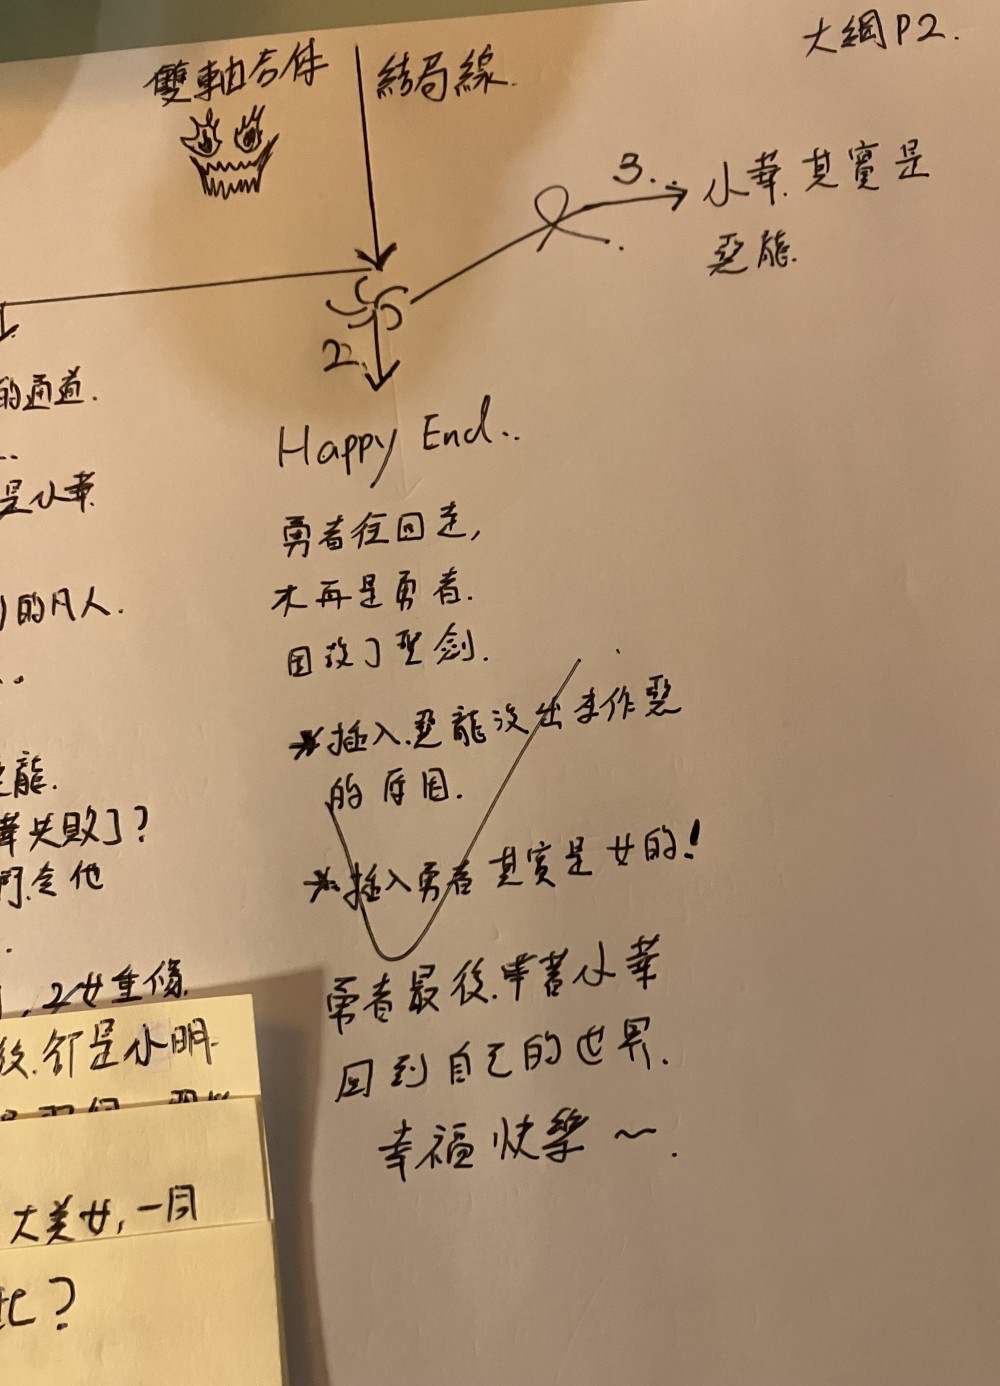 大綱P2.
雙軸合併
結局線.
3.
小華.其實是
惡龍.
1.
2.
的通道.
..
是小華
的凡人.
..
龍.
華失敗了?
門.令他
.
,2女重傷.
後.卻是小明.
大美女,一同
此?
Happy End..
勇者往回走,
不再是勇者.
因放了聖劍.
*插入.惡龍沒出來作惡
的原因.
*插入勇者其實是女的!
勇者最後.牽著小華
回到自己的世界.
幸福快樂~.